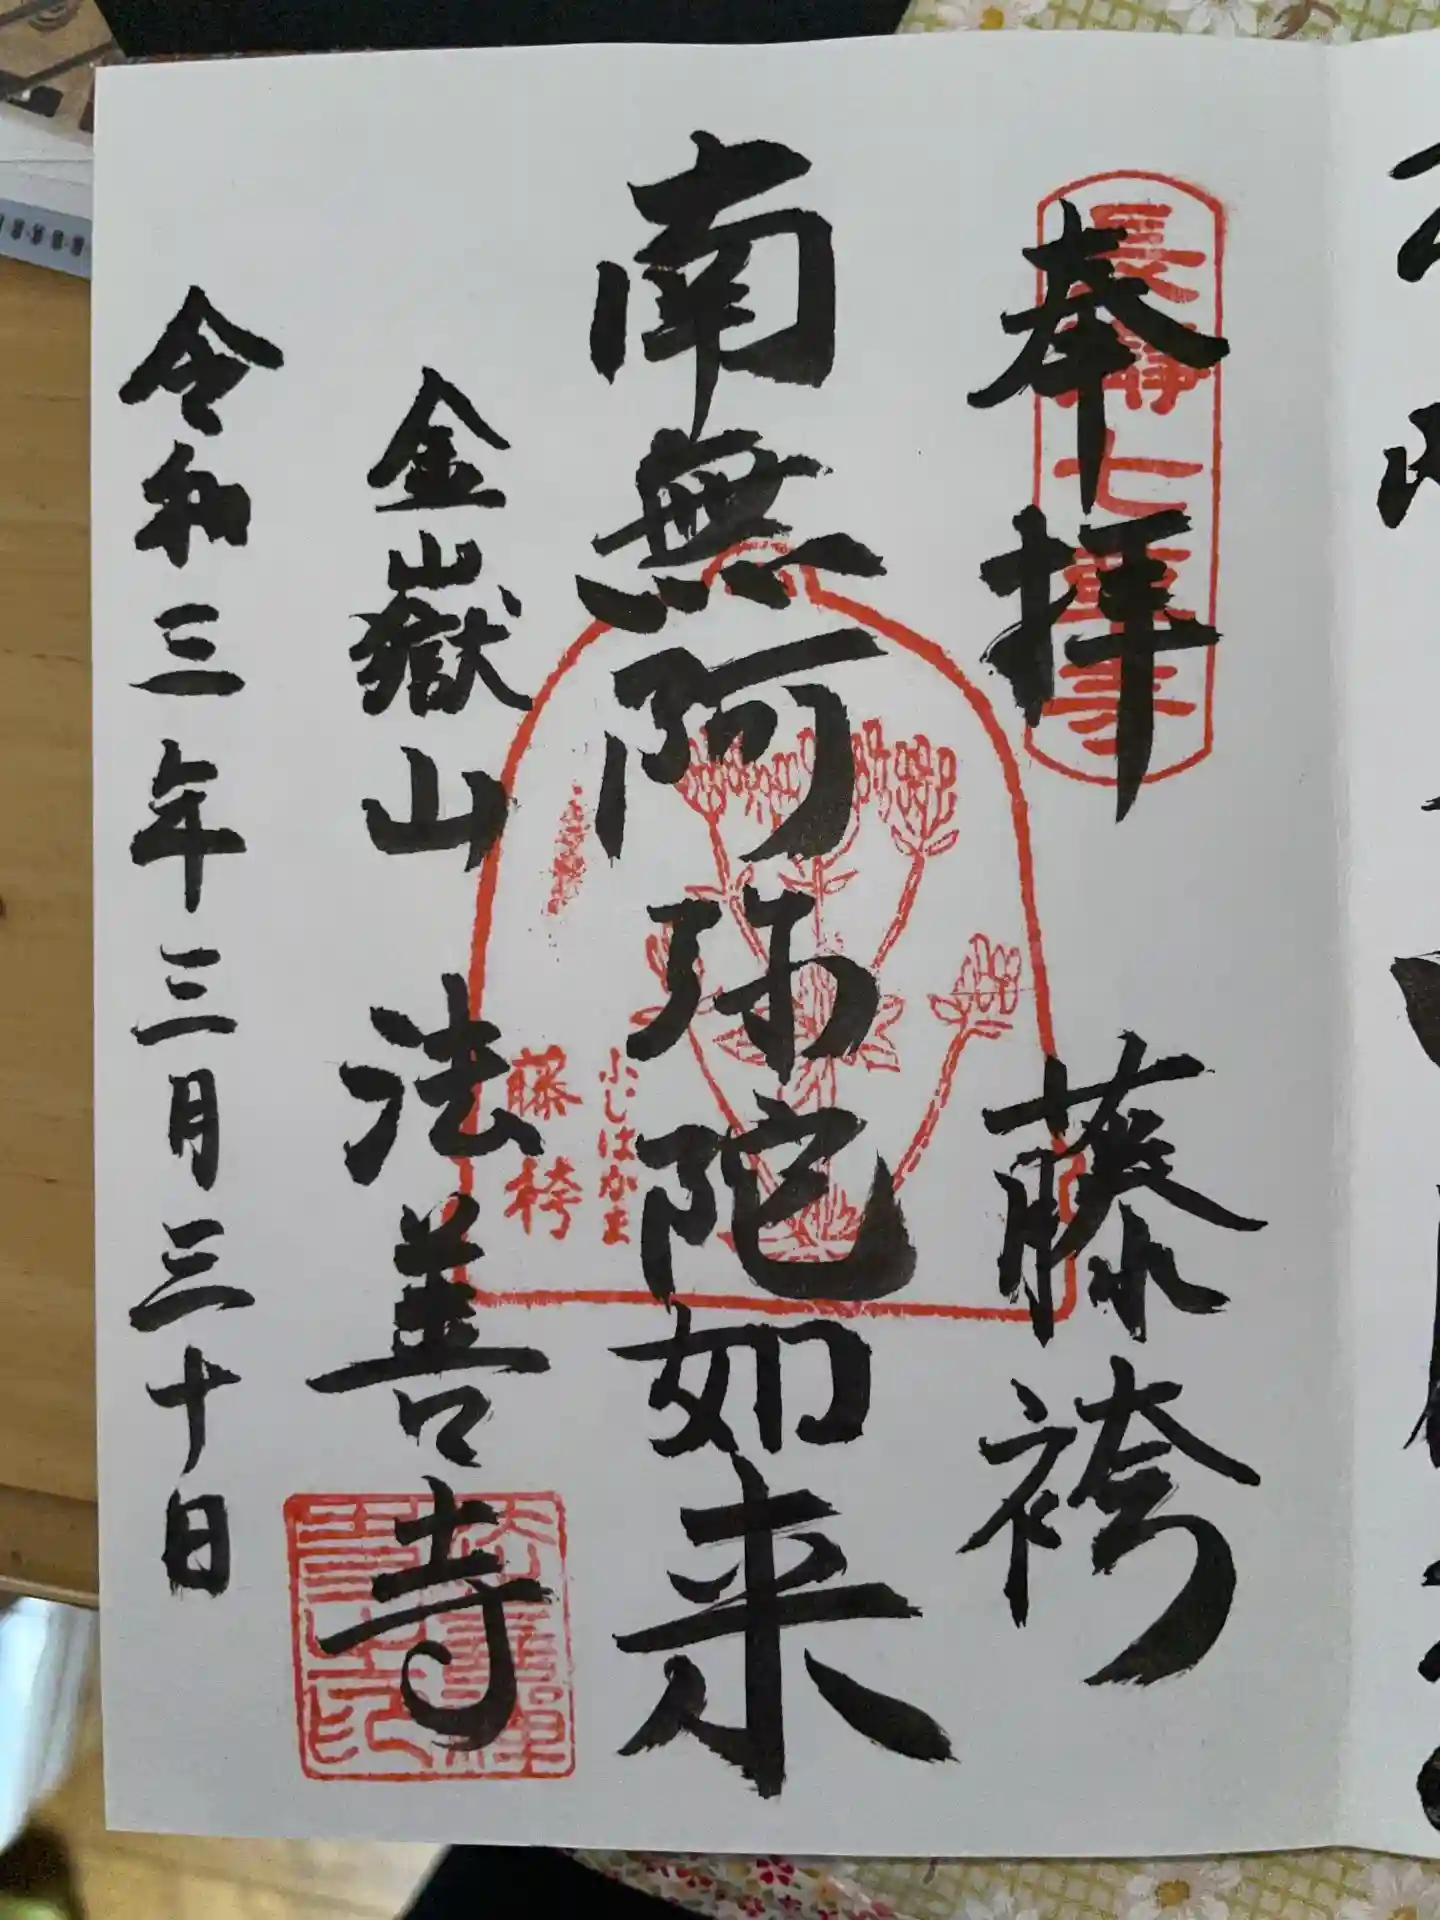 奉拝　藤袴
長瀞七草寺
南無阿弥陀如来
ふじはかま
藤袴
金嶽山　法善寺
令和三年三月三十日